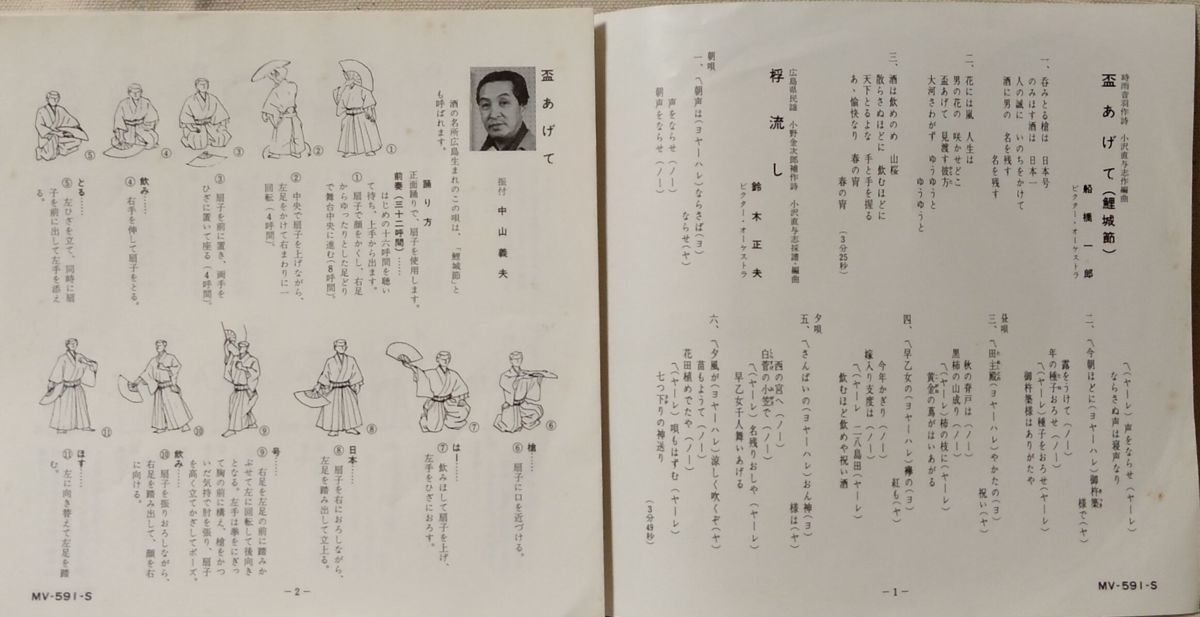 盃あげて(鯉城節)
時雨音羽作詩 小沢直与志作編曲
船橋一郎
ビクター・オーケストラ
一、呑みとる槍は 日本号
のみほす酒は 日本一
人の誠に いのちをかけて
酒に男の 名を残す
名を残す
二、花には嵐 人生は
男の花の 咲かせどこ
盃あげて 見渡す彼方
大河さわがず ゆうゆうと
ゆうゆうと
三、酒は飲めのめ 山桜
散らさぬほどに 飲むほどに
天下とるよな 手と手を握る
あゝ愉快なり 春の宵
春の宵
(3分25秒)
桴流し
広島県民謡 小野金次郎補作詩 小沢直与志採譜・編曲
鈴木正夫
ビクター・オーケストラ
朝唄
一、〽朝声は(ヨヤーハレ)ならさば(ヨ)
声をならせ(ヤーレ)
朝声をならせ(ノー)
ならせ(ヤ)
〽(ヤーレ)声をならせ(ヤーレ)
ならさぬ声は寝声なり
二、〽今朝ほどに(ヨヤーハレ)御杵築
様で(ヤ)
露をうけて(ノー)
年の種子おろせ(ノー)
〽(ヤーレ)種子をおろせ(ヤーレ)
御杵築様はありがたや
昼唄
三、〽田主殿(ヨヤーハレ)やかたの(ヨ)
祝い(ヤ)
秋の背戸は(ノー)
黒柿の山成り(ノー)
〽(ヤーレ)柿の枝に(ヤーレ)
黄金の蔦がはいあがる
四、〽早乙女の(ヨヤーハレ)襷の(ヨ)
紅も(ヤ)
今年かぎり(ノー)
嫁入り支度は(ノー)
〽(ヤーレ)二八島田(ヤーレ)
飲むほど飲めや祝い酒
夕唄
五、〽さんばいの(ヨヤーハレ)おん神(ヨ)
様は(ヤ)
西の宮へ(ノー)
白菅の小笠で(ノー)
〽(ヤーレ)名残りおしや(ヤーレ)
早乙女千人舞いあげる
六、〽夕風が(ヨヤーハレ)涼しく吹くぞ(ヤ)
苗もようて(ノー)
花田植めでたや(ノー)
〽(ヤーレ)唄もはずむ(ヤーレ)
七つ下りの神送り
(3分49秒)
－1－
MV-591-S
盃あげて
振付 中山義夫
酒の名所広島生まれのこの唄は、「鯉城節」と
も呼ばれます。
踊り方
正面踊りで、扇子を使用します。
前奏(三十二呼間)……
はじめの十六呼間を聴い
て待ち、上手から出ます。
① 扇子で顔をかくし、右足
からゆったりとした足どり
で舞台中央に進む(8呼間)。
② 中央で扇子を上げながら、
左足をかけて右まわりに一
回転(4呼間)。
③ 扇子を前に置き、両手を
ひざに置いて座る(4呼間)。
飲み……
④ 右手を伸して扇子をとる。
とる……
⑤ 左ひざを立て、同時に扇
子を前に出して左手を添え
る。
槍……
⑥ 扇子に口を近づける。
はー……
⑦ 飲みほして扇子を上げ、
左手をひざにおろす。
日本……
⑧ 扇子を右におろしながら、
左足を踏み出して立上る。
号……
⑨ 右足を左足の前に踏みか
ぶせて左に回転して後向き
となる。左手は拳をにぎっ
て胸の前に構え、槍をかつ
いだ気持で肘を張り、扇子
を高く立てかざしてポーズ。
飲み……
⑩ 扇子を振りおろしながら、
右足を踏み出して、顔を右
に向ける。
ほす……
⑪ 左に向き替えて左足を踏
む。
①
②
③
④
⑤
⑥
⑦
⑧
⑨
⑩
⑪
－2－
MV-591-S